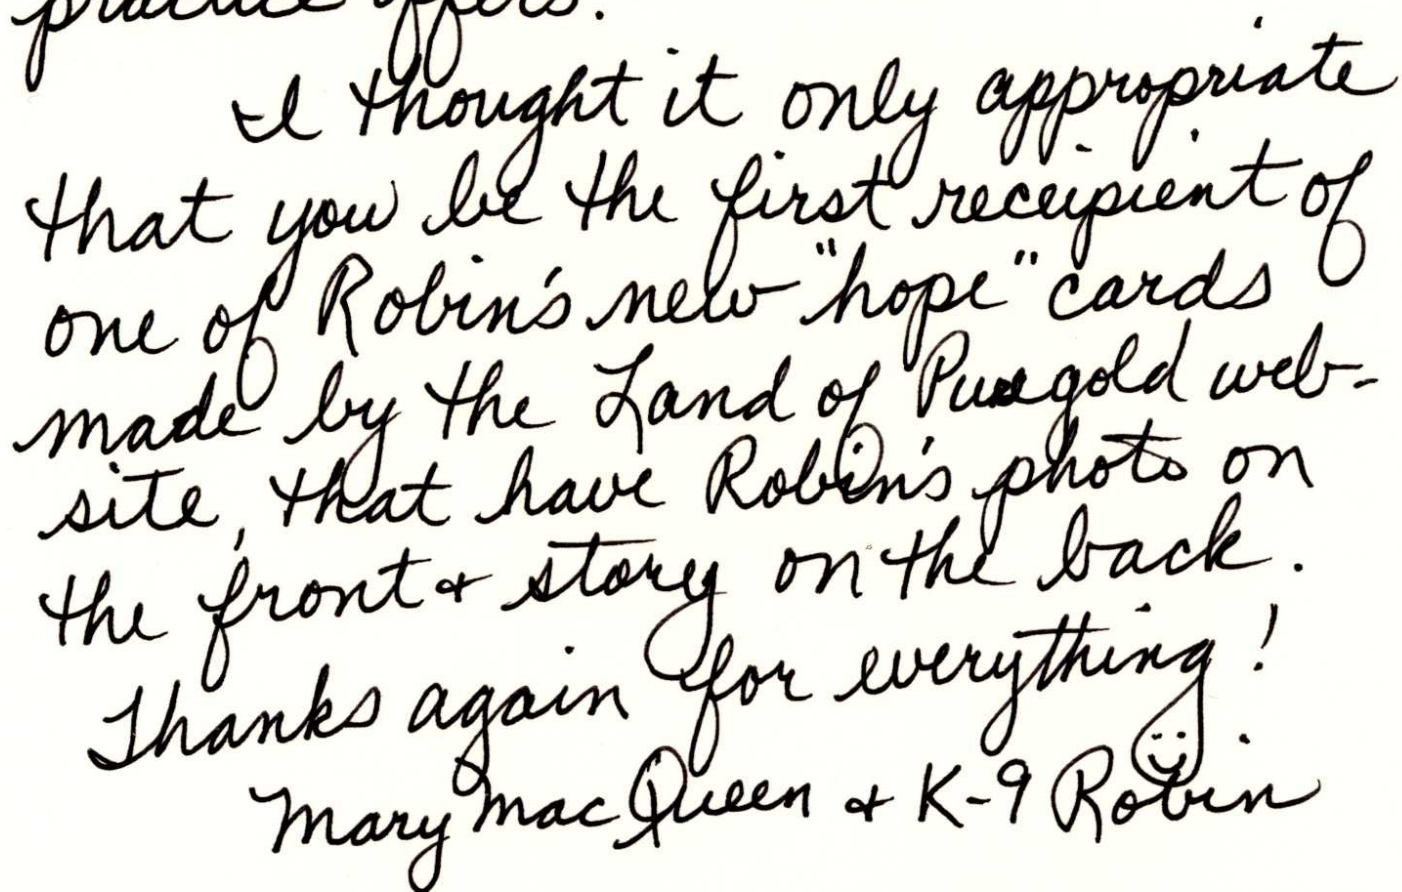 practice offers.
I thought it only appropriate
that you be the first receipient of
one of Robin's new "hope" cards
made by the Land of Puregold web-
site, that have Robin's photo on
the front & story on the back.
Thanks again for everything!
Mary MacQueen & K-9 Robin